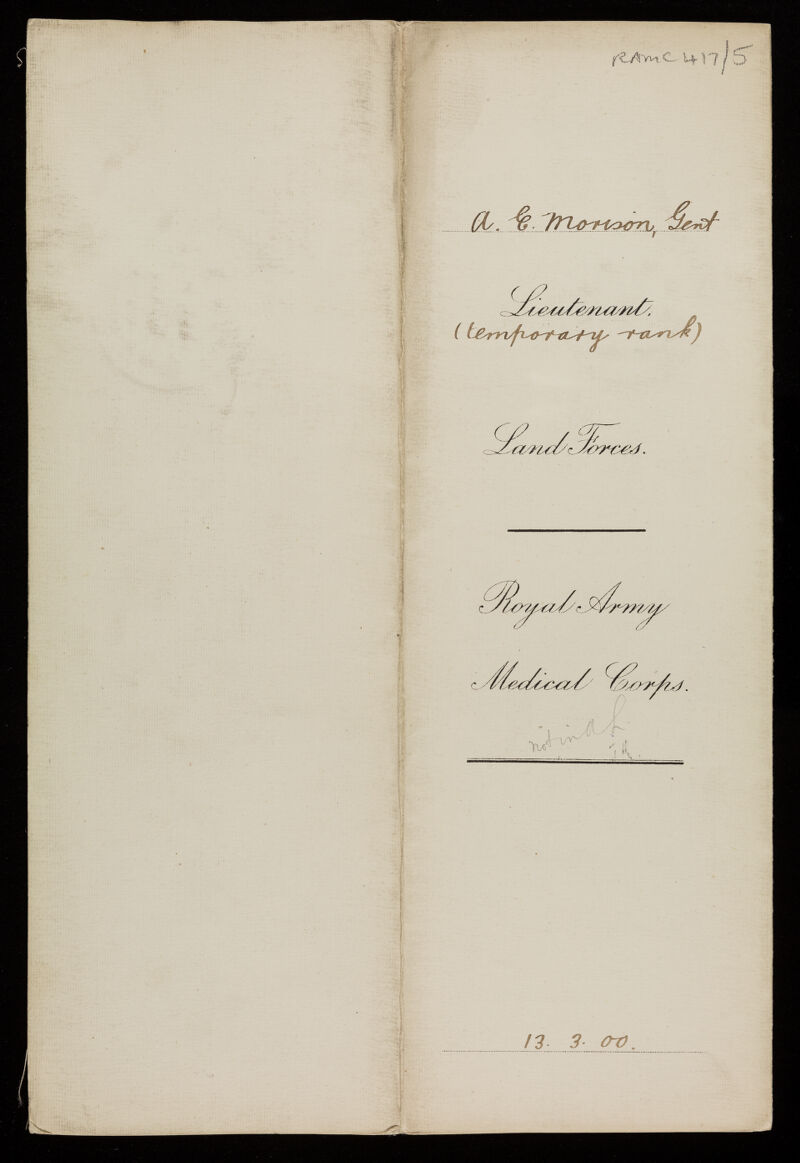 RAMC 417/5
A. E. Morison, Gent
Lieutenant.
(temporary rank)
Land Forces.
Royal Army
Medical Corps.
not in A L
13. 3. 00.